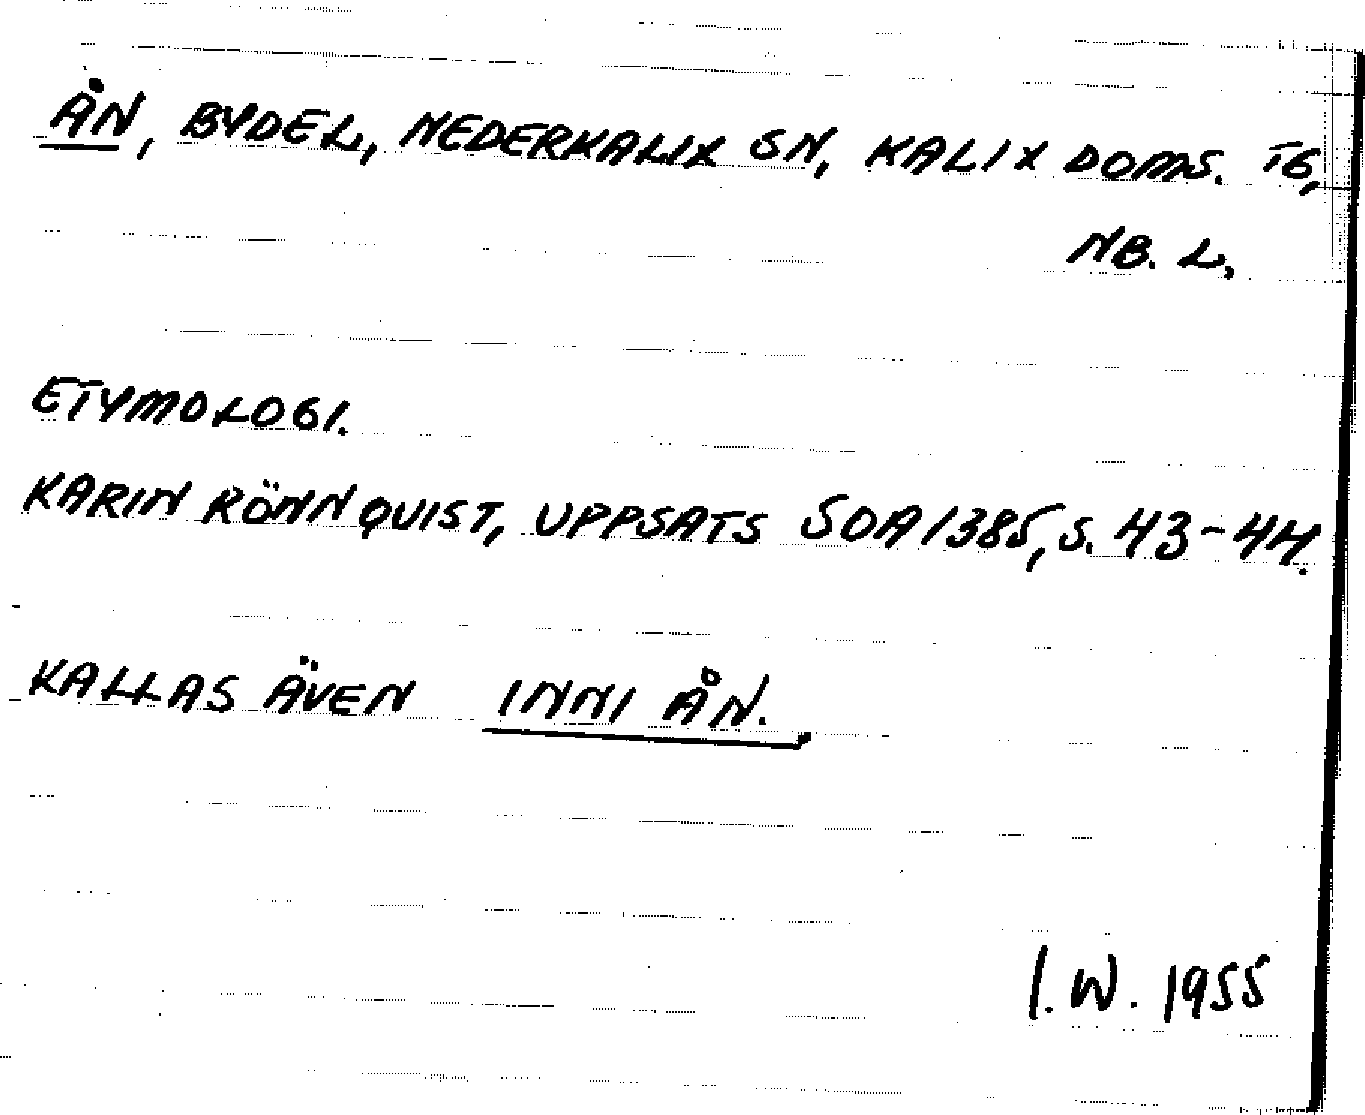 ÅN, BYDEL, NEDERKALIX SN, KALIX DOMS. TG,
NB. L,
ETYMOLOGI.
KARIN RÖNNQUIST, UPPSATS SOA 1385, S. 43-44.
KALLAS ÄVEN INNI ÅN.
I. W. 1955